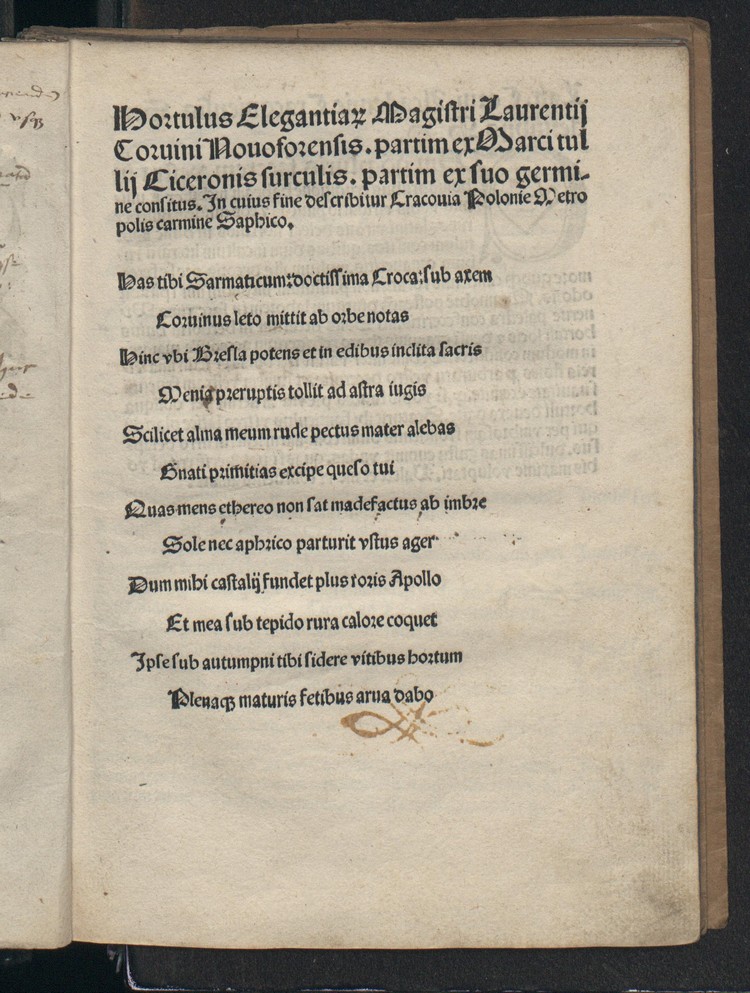 Hortulus Elegantiaꝝ Magistri Laurentij
Coruini Nouoforensis. partim ex Marci tul
lij Ciceronis surculis. partim ex suo germi-
ne consitus. In cuius fine describitur Cracouia Polonie Metro
polis carmine Saphico.
Has tibi Sarmaticum: doctissima Croca: sub axem
Coruinus leto mittit ab orbe notas
Hinc vbi Bresla potens et in edibus inclita sacris
Menia preruptis tollit ad astra iugis
Scilicet alma meum rude pectus mater alebas
Gnati primitias excipe queso tui
Quas mens ethereo non sat madefactus ab imbre
Sole nec aphrico parturit vstus ager
Dum mihi castalij fundet plus roris Apollo
Et mea sub tepido rura calore coquet
Ipse sub autumpni tibi sidere vitibus hortum
Plenaqꝫ maturis fetibus arua dabo